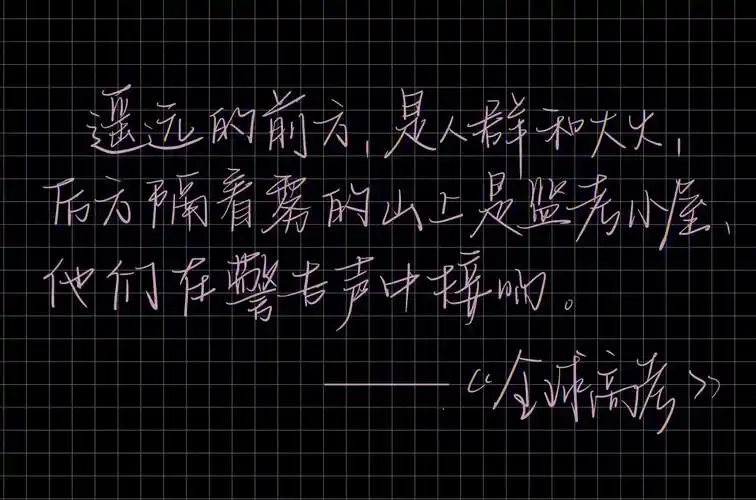 遥远的前方,是人群和大火,
后方隔着雾的山上是监考小屋,
他们在警告声中接吻。
——《全球高考》